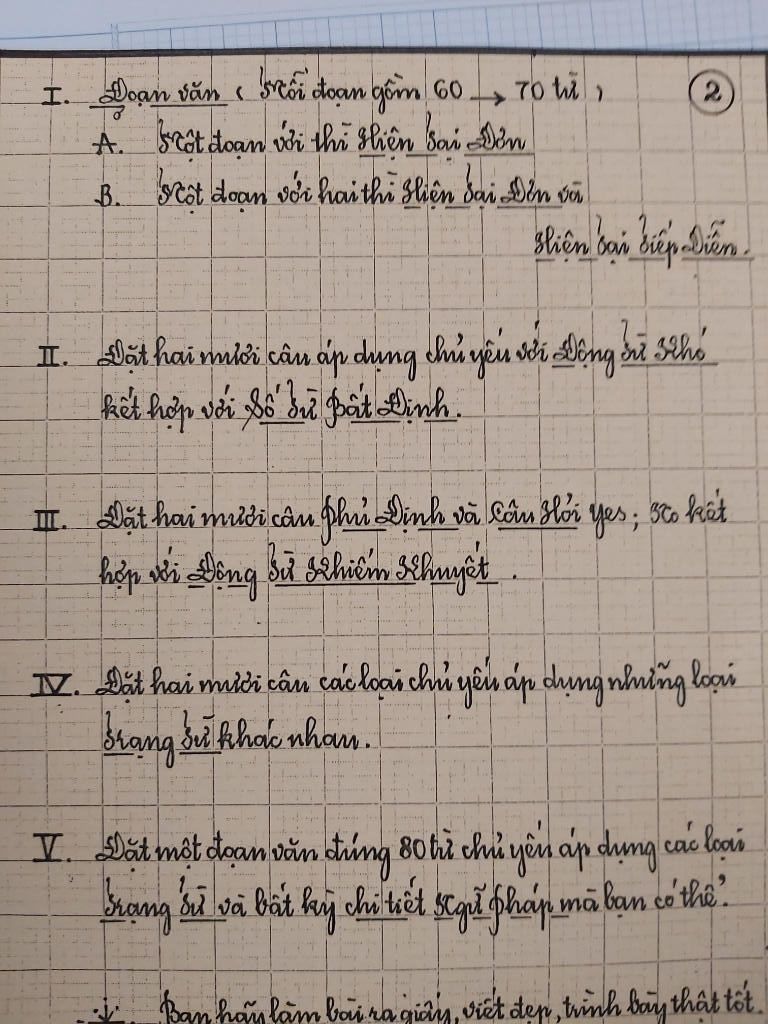 I. Đoạn văn ( Mỗi đoạn gồm 60 → 70 từ ) 2
A. Một đoạn với thì Hiện Tại Đơn
B. Một đoạn với hai thì Hiện Tại Đơn và
Hiện Tại Tiếp Diễn.
II. Đặt hai mươi câu áp dụng chủ yếu với Động Từ Khó
kết hợp với Số Từ Bất Định.
III. Đặt hai mươi câu Phủ Định và Câu Hỏi Yes; No kết
hợp với Động Từ Khiếm Khuyết.
IV. Đặt hai mươi câu các loại chủ yếu áp dụng những loại
Trạng Từ khác nhau.
V. Đặt một đoạn văn đúng 80 từ chủ yếu áp dụng các loại
Trạng Từ và bất kỳ chi tiết Ngữ Pháp mà bạn có thể.
Bạn hãy làm bài ra giấy, viết đẹp, trình bày thật tốt.